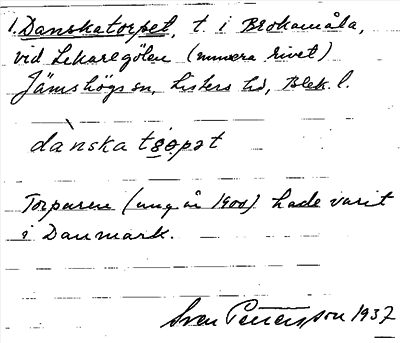 1. Danskatorpet, t. i Brokamåla,
vid Lekaregölen (numera rivet)
Jämshögs sn, Listers hd, Blek. l.
dànska tɷrpət
Torparen (ung år 1900) hade varit
i Danmark.
Sven Petersson 1937